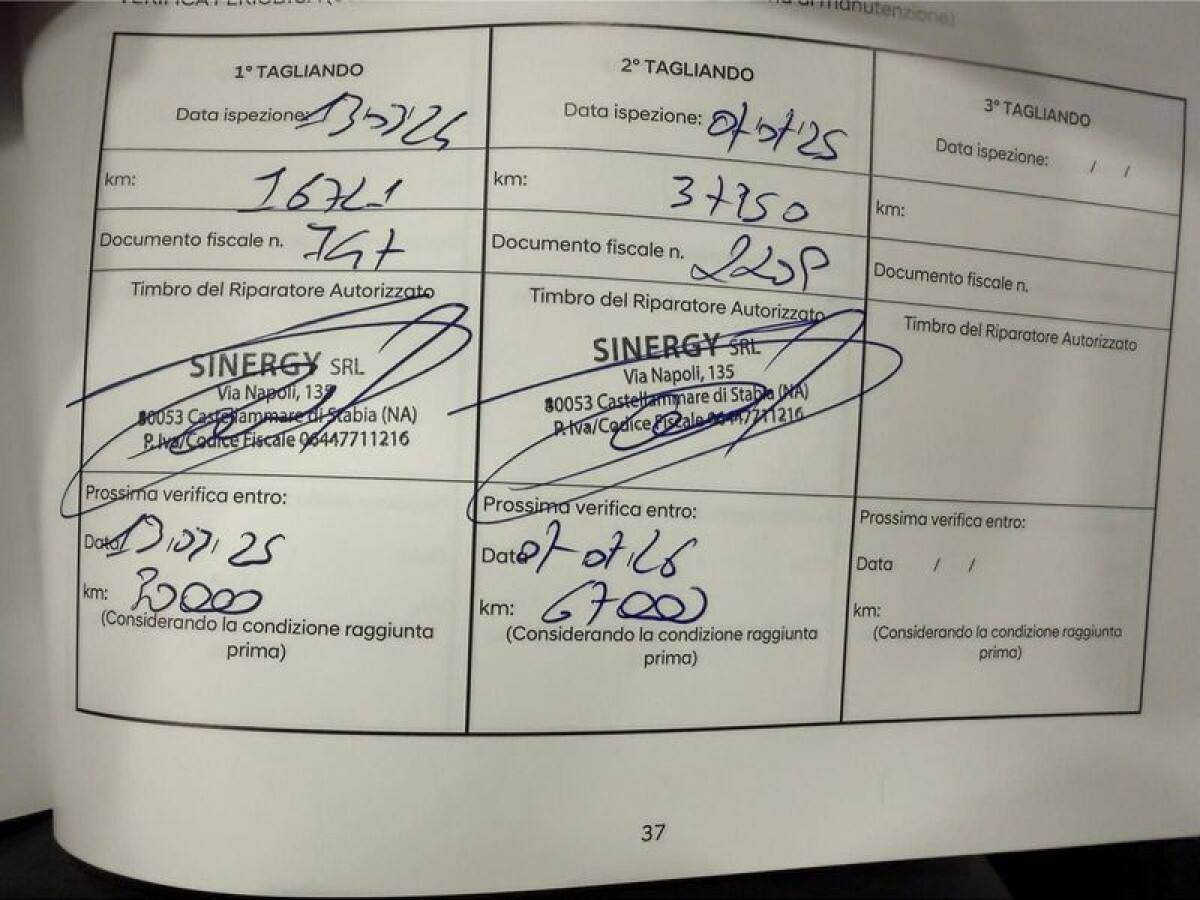 di manutenzione)
1° TAGLIANDO
Data ispezione:
km: 16721
Documento fiscale n. 747
Timbro del Riparatore Autorizzato
SINERGY SRL
Via Napoli, 135
80053 Castellammare di Stabia (NA)
P. Iva/Codice Fiscale 06447711216
Prossima verifica entro:
Data
km:
(Considerando la condizione raggiunta
prima)
2° TAGLIANDO
Data ispezione: 07/07/25
km: 37350
Documento fiscale n. 2209
Timbro del Riparatore Autorizzato
SINERGY SRL
Via Napoli, 135
80053 Castellammare di Stabia (NA)
P. Iva/Codice Fiscale 06447711216
Prossima verifica entro:
Data 07-07-26
km: 67000
(Considerando la condizione raggiunta
prima)
3° TAGLIANDO
Data ispezione: / /
km:
Documento fiscale n.
Timbro del Riparatore Autorizzato
Prossima verifica entro:
Data / /
km:
(Considerando la condizione raggiunta
prima)
37